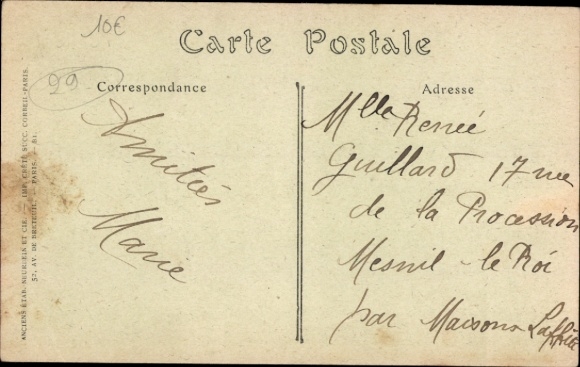 10€
Carte Postale
29
Correspondance
Adresse
Amitiés
Marie
Mlle Renée
Guillard 17 rue
de la Procession
Mesnil-le Roi
par Maisons Laffitte
ANCIENS ÉTAB. NEURDEIN ET CIE. — IMP. CRÉTÉ SUCC. CORBEIL-PARIS.
52, AV. DE BRETEUIL — PARIS. —